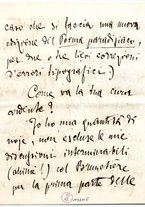 caso che si faccia una nuova
edizione del Poema paradisiaco
per due o tre lievi correzioni
d'errori tipografici?
Come va la tua cura
ardente?
Io ho una quantità di
noje, non escluse le mie
discussioni interminabili
(ahimè!) col Brunetière
per la prima parte delle